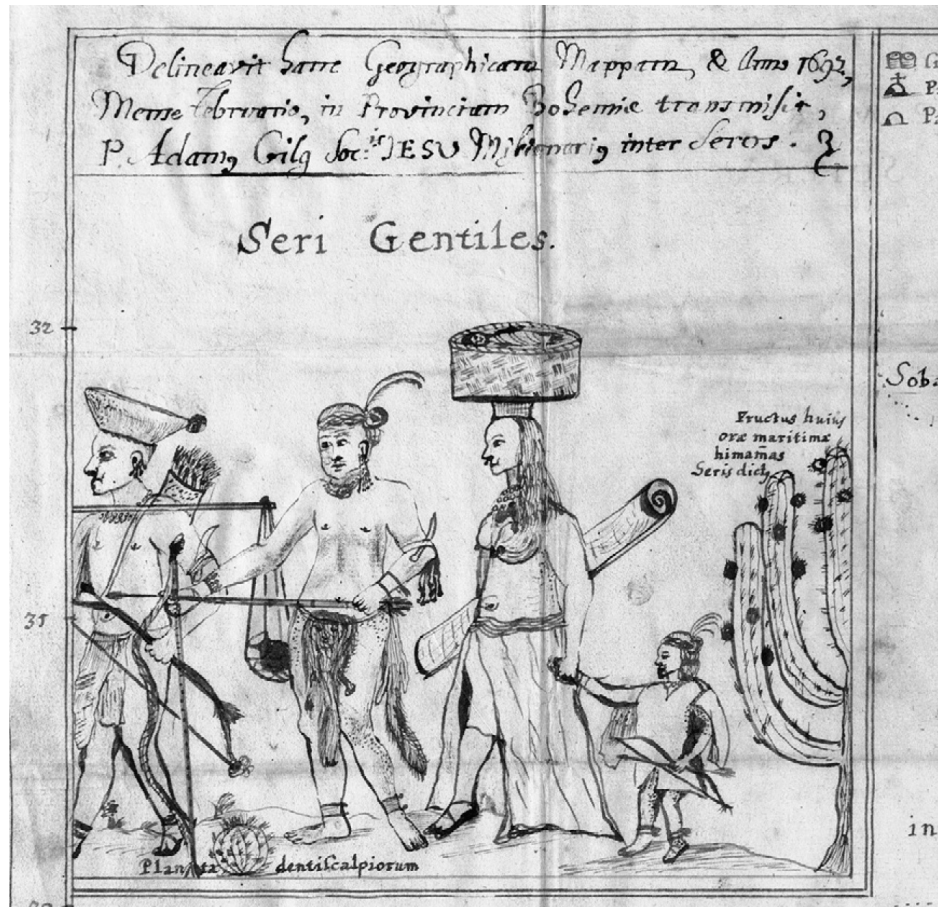 Delineavit hanc Geographicam Mappam, & Anno 1692,
Mense Februario, in Provinciam Bohemiæ transmisit,
P. Adam, Gilg Soc.is IESU Mißionari9 inter Seros.
Seri Gentiles.
32
Fructus huius
oræ maritimæ
himam̃as
Seris dict9
31
Planta dentiscalpiorum
G
P
P
Sob
in